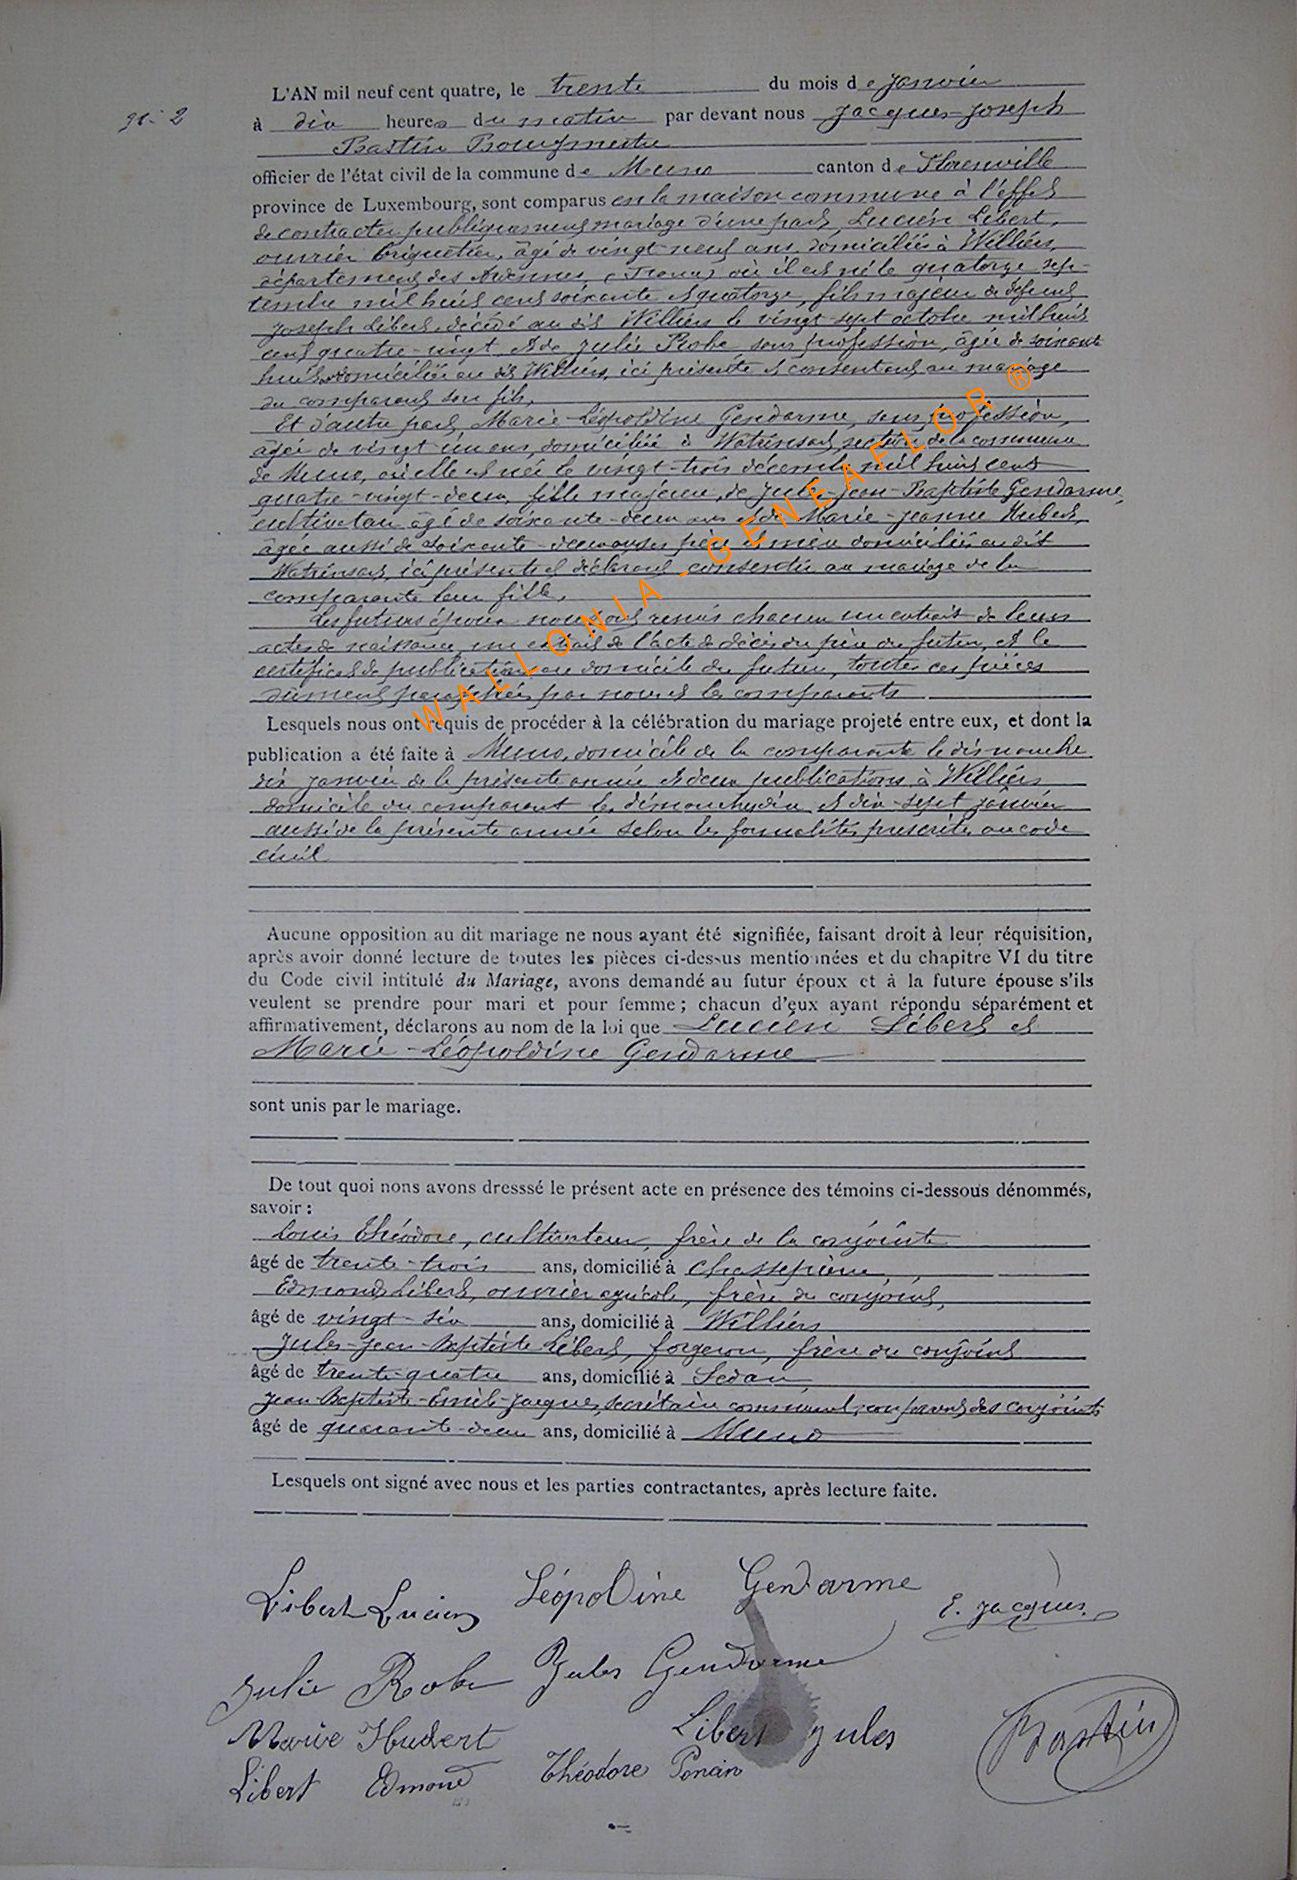 L'AN mil neuf cent quatre, le trente du mois de janvier
n° 2
à dix heures du matin par devant nous Jacques-Joseph
Bastin Bourgmestre
officier de l'état civil de la commune de Muno canton de Florenville
province de Luxembourg, sont comparus en la maison commune à l'effet
de contracter publiquement mariage d'une part, Lucien Libert,
ouvrier briquetier, âgé de vingt neuf ans, domicilié à Williers
département des Ardennes, (France) où il est né le quatorze sep-
tembre mil huit cent soixante et quatorze, fils majeur de défunt
Joseph Libert, décédé au dit Williers le vingt-sept octobre mil huit
cent quatre-vingt et de Julie Robe, sans profession, âgée de soixante
huit, domiciliée au dit Williers, ici présente et consentant au mariage
du comparant son fils,
Et d'autre part, Marie-Léopoldine Gendarme, sans profession,
âgée de vingt un ans, domiciliée à Watrinsart, section de la commune
de Muno, où elle est née le vingt-trois décembre mil huit cent
quatre-vingt-deux, fille majeure, de Jules-Jean-Baptiste Gendarme,
cultivateur âgé de soixante-deux ans et de Marie-Jeanne Hubert,
âgée aussi de soixante-deux ans père et mère domiciliés au dit
Watrinsart, ici présents et déclarant consentir au mariage de la
comparante leur fille,
Les futurs époux nous ont remis chacun un extrait de leurs
actes de naissance, un extrait de l'acte de décès du père du futur, et le
certificat de publication au domicile du futur, toutes ces pièces
dûment paraphées par nous et les comparants
Lesquels nous ont requis de procéder à la célébration du mariage projeté entre eux, et dont la
publication a été faite à Muno, domicile de la comparante le dimanche
dix janvier de la présente année et deux publications à Williers
domicile du comparant les dimanches dix et dix-sept janvier
aussi de la présente année selon les formalités prescrites au code
civil
Aucune opposition au dit mariage ne nous ayant été signifiée, faisant droit à leur réquisition,
après avoir donné lecture de toutes les pièces ci-dessus mentionnées et du chapitre VI du titre
du Code civil intitulé du Mariage, avons demandé au futur époux et à la future épouse s'ils
veulent se prendre pour mari et pour femme ; chacun d'eux ayant répondu séparément et
affirmativement, déclarons au nom de la loi que Lucien Libert et
Marie-Léopoldine Gendarme
sont unis par le mariage.
De tout quoi nons avons dresssé le présent acte en présence des témoins ci-dessous dénommés,
savoir :
Louis Théodore, cultivateur, frère de la conjointe
âgé de trente-trois ans, domicilié à Chassepierre,
Edmond Libert, ouvrier agricole, frère du conjoint,
âgé de vingt-six ans, domicilié à Williers
Jules-Jean-Baptiste Libert, forgeron, frère du conjoint
âgé de trente-quatre ans, domicilié à Sedan,
Jean-Baptiste-Emile-Jacques, secrétaire communal, non parent des conjoints
âgé de quarante-deux ans, domicilié à Muno
Lesquels ont signé avec nous et les parties contractantes, après lecture faite.
Libert Lucien Léopoldine Gendarme E. Jacques
Julie Robe Jules Gendarme
Marie Hubert Libert Jules Bastin
Libert Edmond Théodore
WALLONIA-GENEAFLOR ®